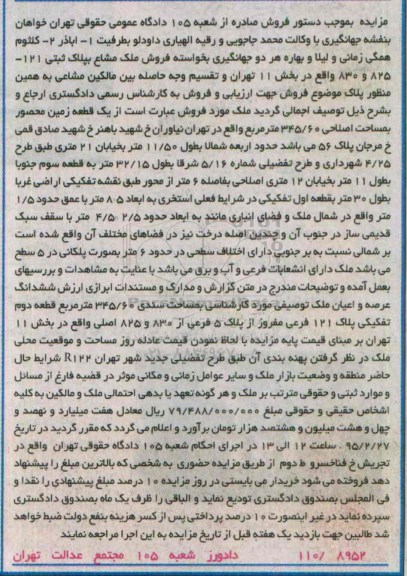 مزایده بموجب دستور فروش صادره از شعبه ۱۰۵ دادگاه عمومی حقوقی تهران خواهان
بنفشه جهانگیری با وکالت محمد جاجویی و رقیه الهیاری داودلو بطرفیت ۱- اباذر ۲- کلثوم
همگی زمانی و لیلا و بهاره هر دو جهانگیری بخواسته فروش ملک مشاع بپلاک ثبتی ۱۲۱-
۸۲۵ و ۸۳۰ واقع در بخش ۱۱ تهران و تقسیم وجه حاصله بین مالکین مشاعی به همین
منظور پلاک موضوع فروش جهت ارزیابی و فروش به کارشناس رسمی دادگستری ارجاع و
بشرح ذیل توصیف اجمالی گردید ملک مورد فروش عبارت است از یک قطعه زمین محصور
بمساحت اصلاحی ۳۴۵/۶۰ مترمربع واقع در تهران نیاوران خ شهید باهنر خ شهید صادق قمی
خ مرجان پلاک ۵۶ می باشد حدود اربعه شمالا بطول ۱۱/۵۰ متر بخیابان ۲۱ متری طبق طرح
۴/۲۵ شهرداری و طرح تفضیلی شماره ۵/۱۶ شرقا بطول ۳۲/۱۵ متر به قطعه سوم جنوبا
بطول ۱۱ متر بخیابان ۱۲ متری اصلاحی بفاصله ۶ متر از محور طبق نقشه تفکیکی اراضی غربا
بطول ۳۰ متر بقطعه اول تفکیکی در شرایط فعلی استخری به ابعاد ۸۰۵ متر با عمق حدود ۱/۵
متر واقع در شمال ملک و فضای انباری مانند به ابعاد حدود ۲/۵ ۴/۵ متر با سقف سبک
قدیمی ساز در جنوب آن و چندین اصله درخت نیز در فضاهای مختلف آن واقع شده است
بر شمالی نسبت به بر جنوبی دارای اختلاف سطحی در حدود ۶ متر بصورت پلکانی در ۵ سطح
می باشد ملک دارای انشعابات فرعی و آب و برق می باشد با عنایت به مشاهدات و بررسیهای
بعمل آمده و توضیحات مندرج در متن گزارش و مدارک و مستندات ابرازی ارزش ششدانگ
عرصه و اعیان ملک توصیفی مورد کارشناسی بمساحت سندی ۳۴۵/۶۰ مترمربع قطعه دوم
تفکیکی پلاک ۱۲۱ فرعی مفروز از پلاک ۵ فرعی از ۸۳۰ و ۸۲۵ اصلی واقع در بخش ۱۱
تهران بر مبنای قیمت پایه مزایده با لحاظ نمودن قیمت عادله روز مساحت و موقعیت محلی
ملک در نظر گرفتن پهنه بندی آن طبق طرح تفضیلی جدید شهر تهران R۱۲۲ شرایط حال
حاضر منطقه و وضعیت بازار ملک و سایر عوامل زمانی و مکانی موثر در قضیه فارغ از مسائل
و موارد ثبتی و حقوقی مترتب بر ملک و هر گونه تعهد یا بدهی احتمالی ملک و مالکین به کلیه
اشخاص حقیقی و حقوقی مبلغ ۷۹/۴۸۸/۰۰۰/۰۰۰ ریال معادل هفت میلیارد و نهصد و
چهل و هشت میلیون و هشتصد هزار تومان برآورد و اعلام می گردد که مقرر گردید در تاریخ
۹۵/۲/۲۷ ساعت ۱۲ الی ۱۳ در اجرای احکام شعبه ۱۰۵ دادگاه حقوقی تهران واقع در
تجریش خ فناخسرو ط دوم از طریق مزایده حضوری به شخصی که بالاترین مبلغ را پیشنهاد
دهد فروخته می شود خریدار می بایستی در روز مزایده ۱۰ درصد مبلغ پیشنهادی را نقدا و
فی المجلس بصندوق دادگستری تودیع نماید و الباقی را ظرف یک ماه بصندوق دادگستری
سپرده نماید در غیر اینصورت ۱۰ درصد پرداختی پس از کسر هزینه بنفع دولت ضبط خواهد
شد طالبین جهت بازدید یک هفته قبل از تاریخ مزایده به این اجرا مراجعه نمایند
۱۱۰/ ۸۹۵۲ دادورز شعبه ۱۰۵ مجتمع عدالت تهران